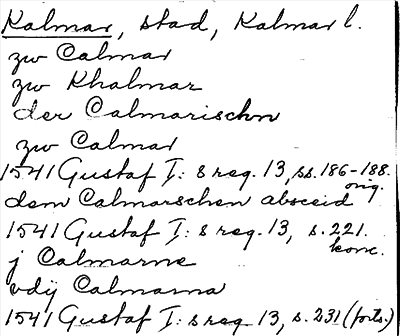 Kalmar, stad, Kalmar l.
zw Calmar
zw Khalmar
der Calmarischn
zw Calmar
1541 Gustaf I: s reg. 13, ss. 186-188.
orig.
dem Calmarschen absceid
1541 Gustaf I: s reg. 13, s. 221.
konc.
j Calmarne
vdij Calmarna
1541 Gustaf I: s reg. 13, s. 231 (forts.)